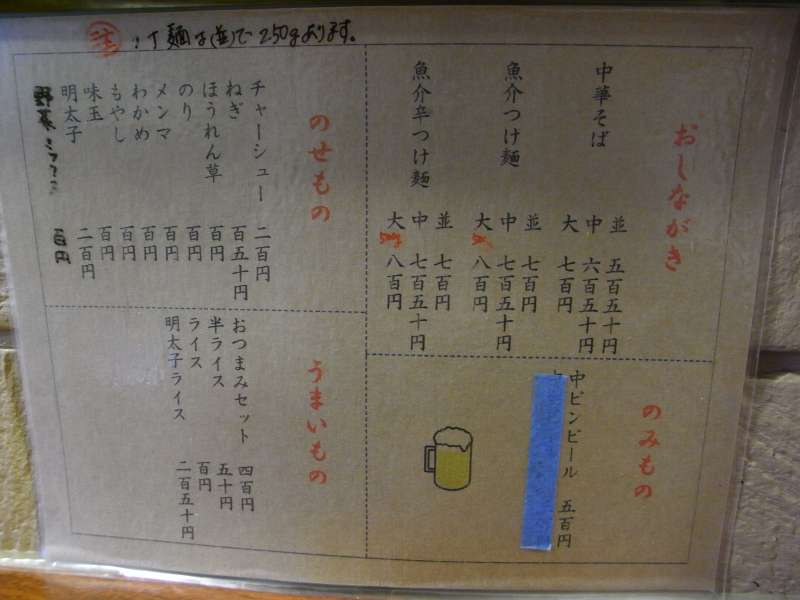 注 :丁麺は(並)で250gあります。
おしながき
中華そば
並 五百五十円
中 六百五十円
大 七百円
魚介つけ麺
並 七百円
中 七百五十円
大 八百円
魚介辛つけ麺
並 七百円
中 七百五十円
大 八百円
のせもの
チャーシュー 二百円
ねぎ 百五十円
ほうれん草 百円
のり 百円
メンマ 百円
わかめ 百円
もやし 百円
味玉 百円
明太子 二百円
野菜 百円
のみもの
中ビンビール 五百円
うまいもの
おつまみセット 四百円
半ライス 五十円
ライス 百円
明太子ライス 二百五十円